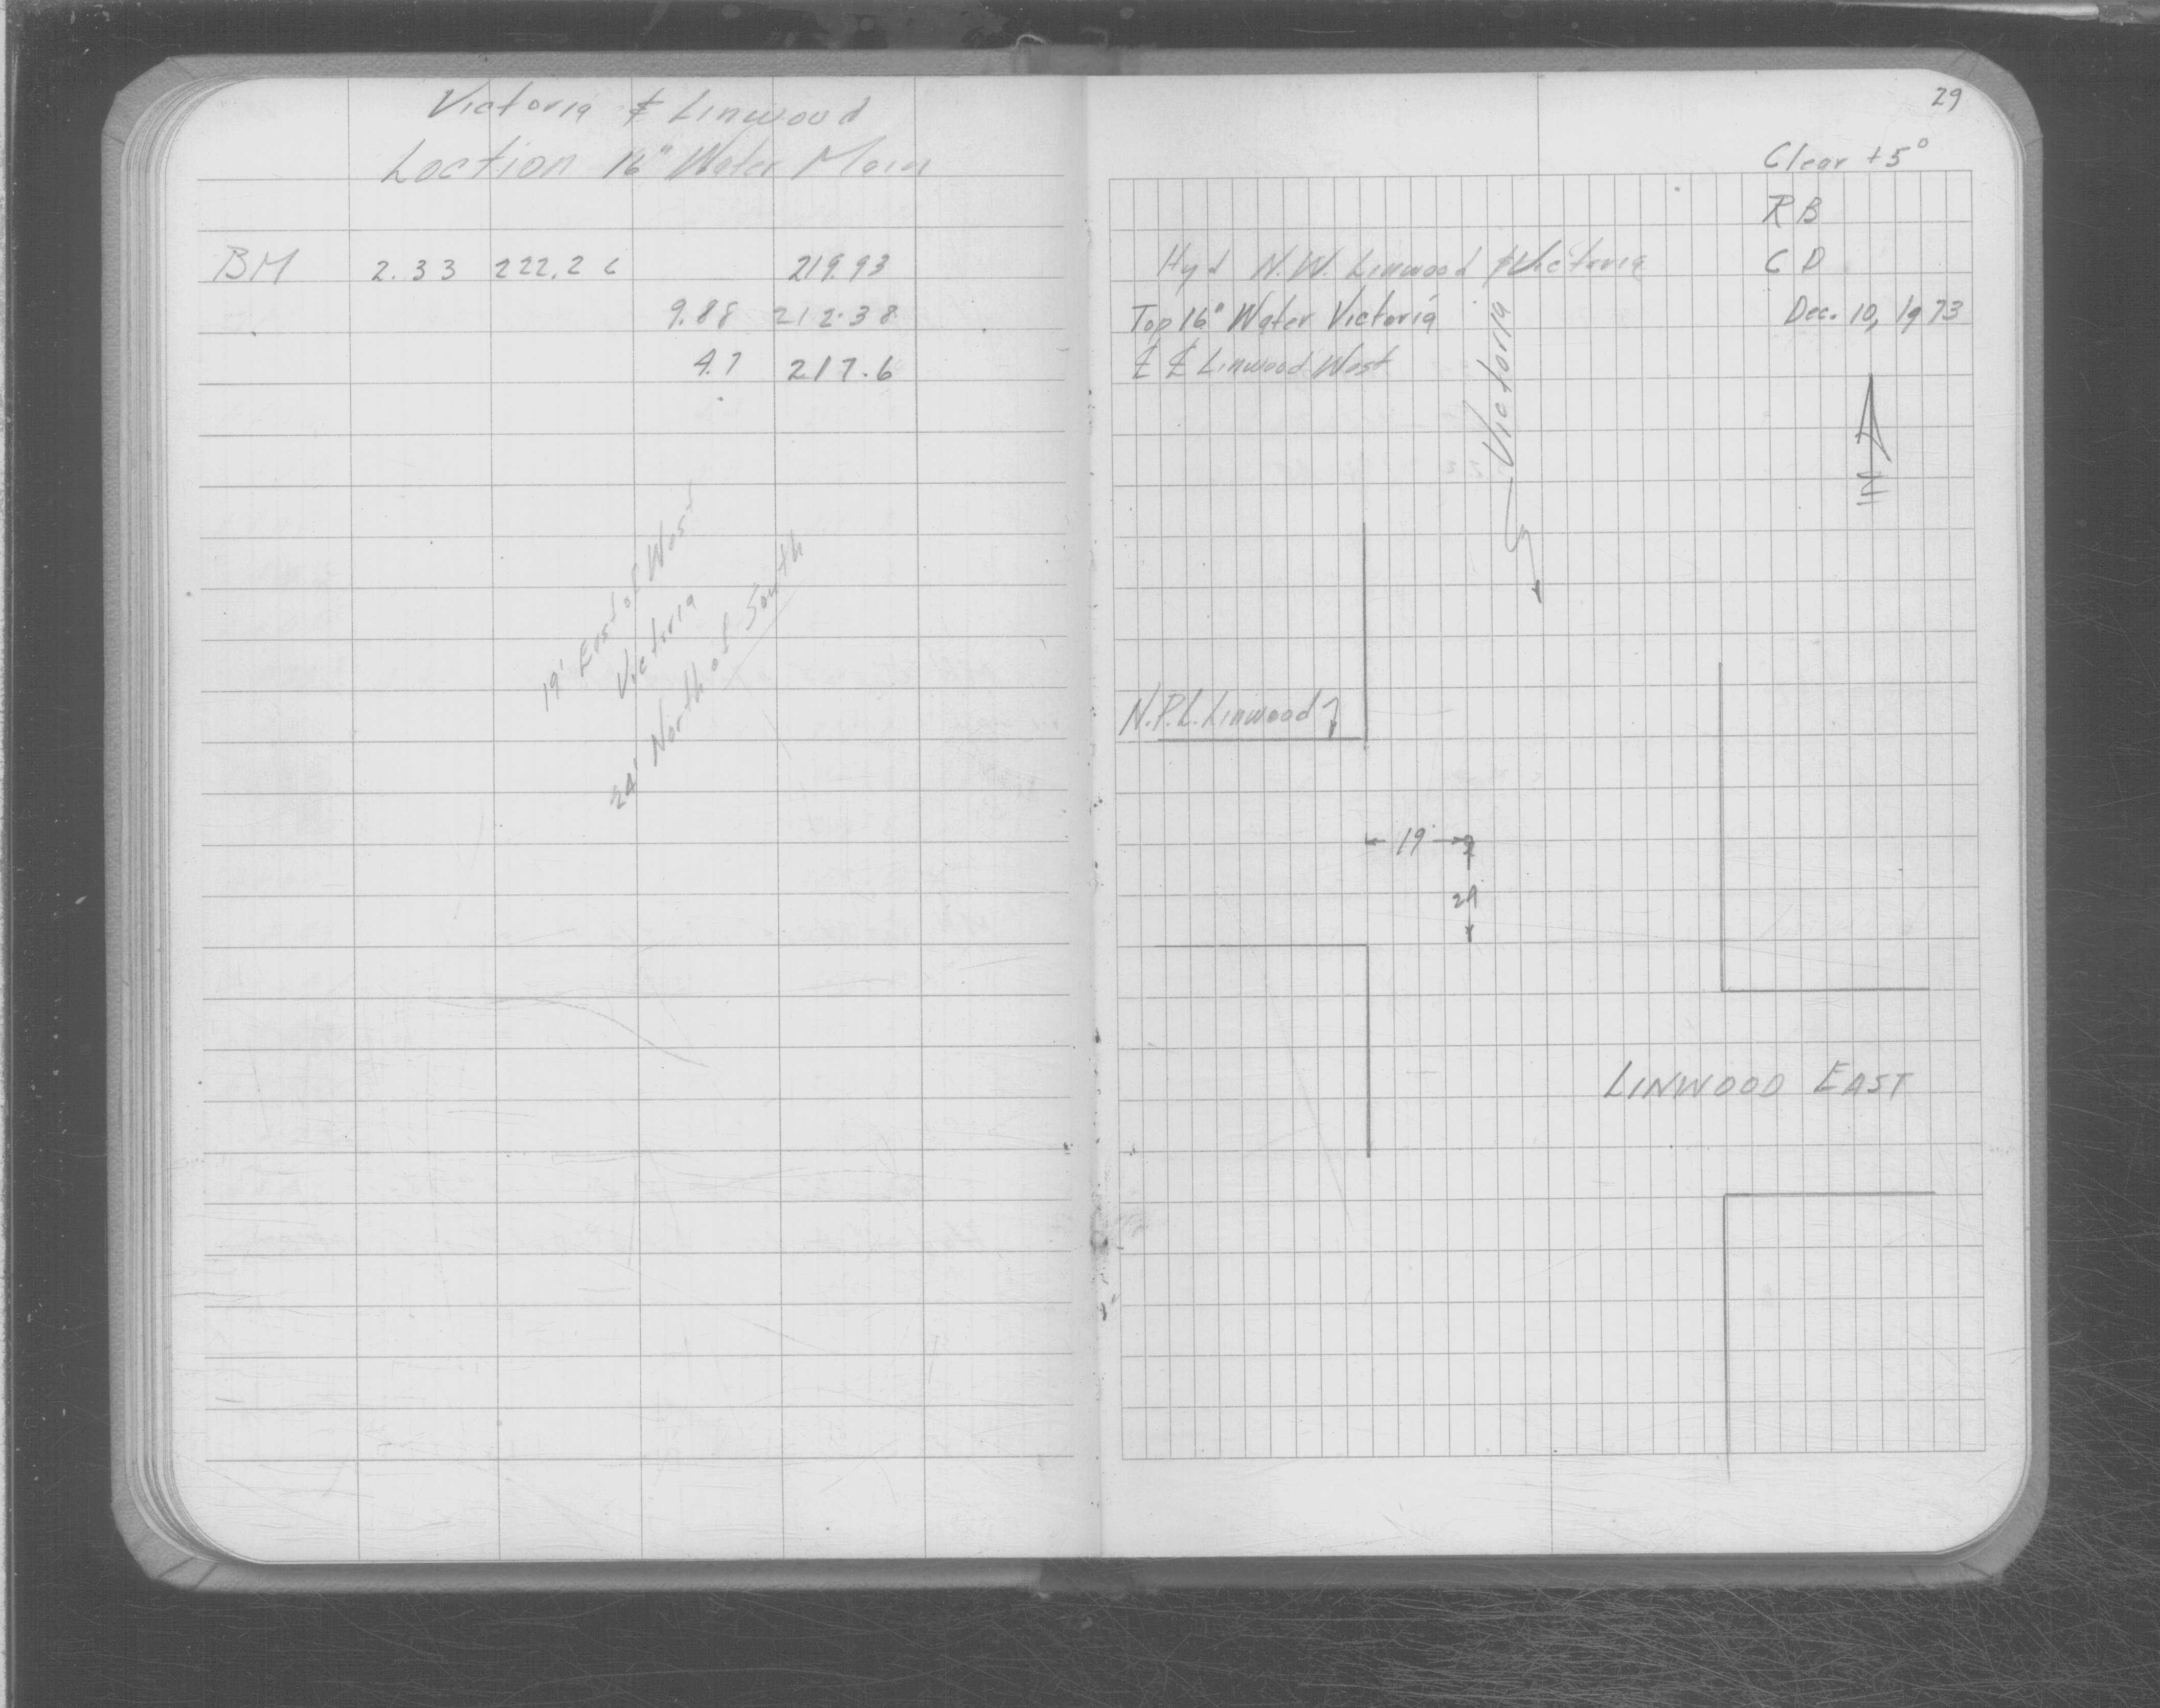 Victoria & Linwood
Loction 16" Water Main
BM 2.33 222.26 219.93
9.88 212.38
4.7 217.6
19' East of West
Victoria
24' North of South
29
Clear +5°
RB
CD
Dec. 10, 1973
Hyd N.W. Linwood & Victoria
Top 16" Water Victoria
℄ ℄ Linwood West
Victoria
N
N.P.L. Linwood
19
24
LINWOOD EAST